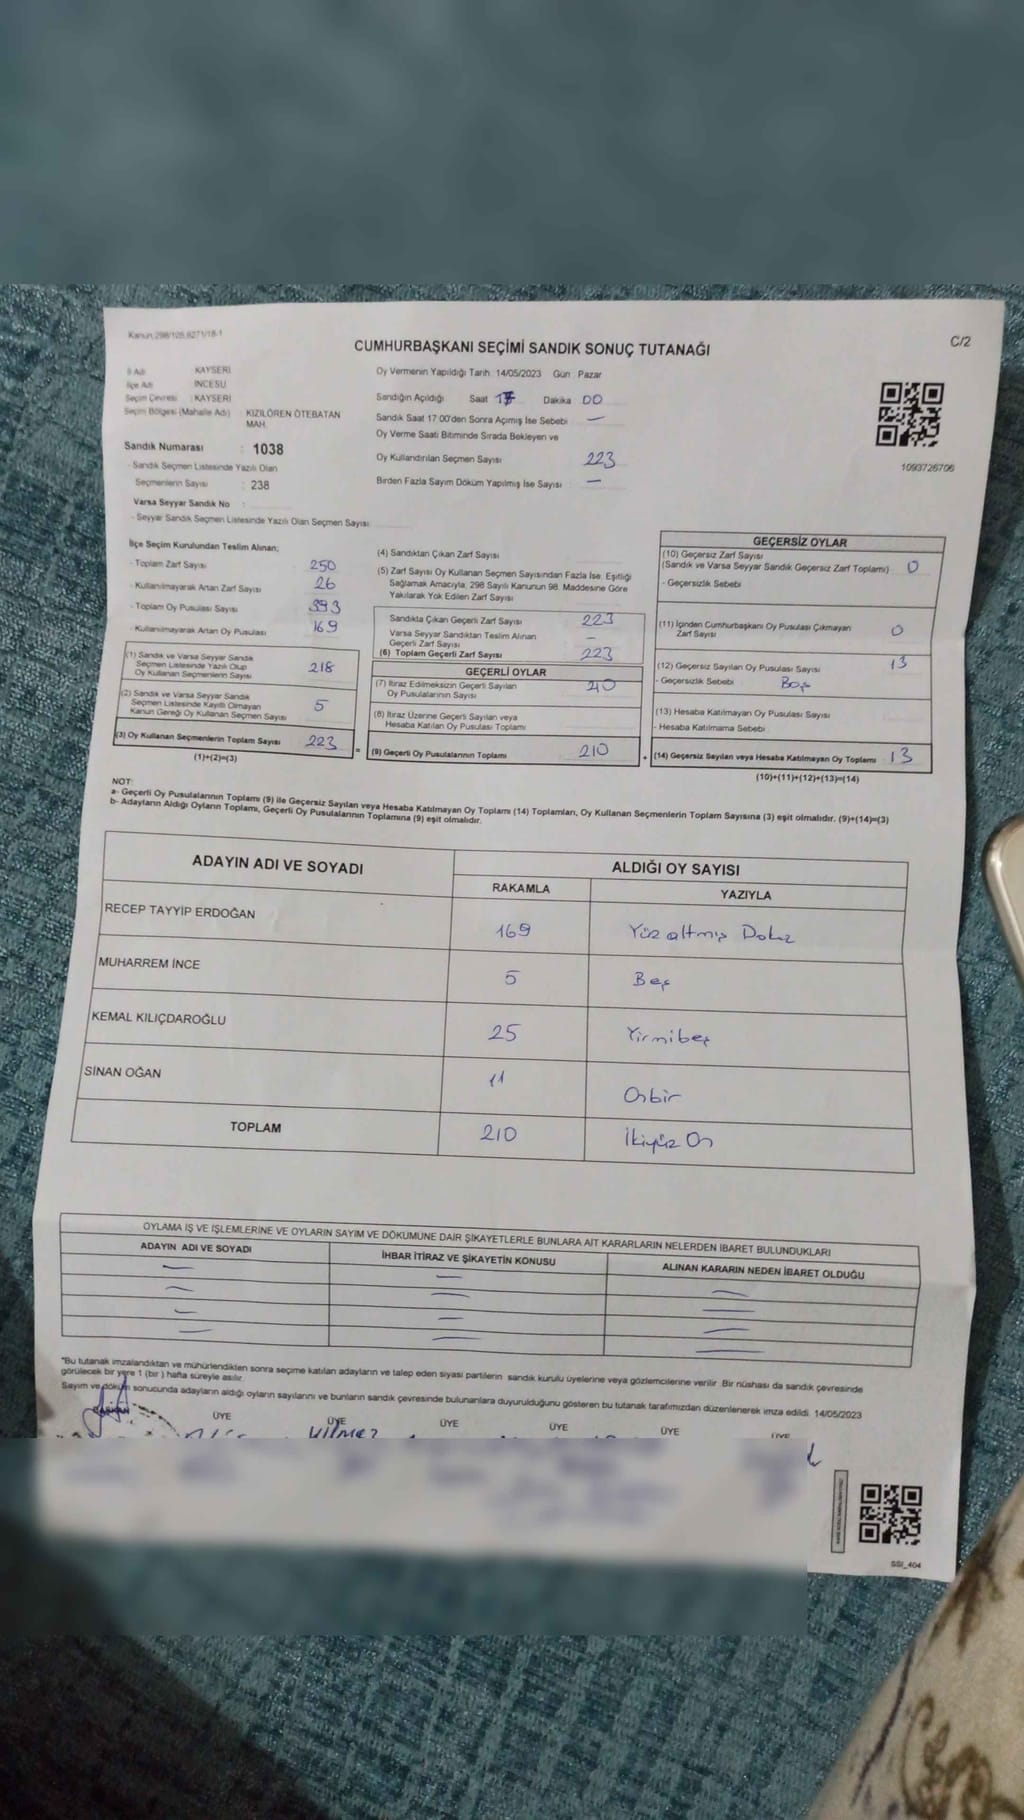 Kanun 298/105,6271/18-1
C/2
CUMHURBAŞKANI SEÇİMİ SANDIK SONUÇ TUTANAĞI
İl Adı KAYSERİ
İlçe Adı İNCESU
Seçim Çevresi : KAYSERİ
Seçim Bölgesi (Mahalle Adı) : KIZILÖREN ÖTEBATAN MAH.
Sandık Numarası : 1038
- Sandık Seçmen Listesinde Yazılı Olan
Seçmenlerin Sayısı : 238
Varsa Seyyar Sandık No :
- Seyyar Sandık Seçmen Listesinde Yazılı Olan Seçmen Sayısı
Oy Vermenin Yapıldığı Tarih 14/05/2023 Gün : Pazar
Sandığın Açıldığı Saat 17 Dakika 00
Sandık Saat 17:00'den Sonra Açımış İse Sebebi —
Oy Verme Saati Bitiminde Sırada Bekleyen ve
Oy Kullandırılan Seçmen Sayısı 223
Birden Fazla Sayım Döküm Yapılmış İse Sayısı : —
1093726706
İlçe Seçim Kurulundan Teslim Alınan;
- Toplam Zarf Sayısı 250
- Kullanılmayarak Artan Zarf Sayısı 26
- Toplam Oy Pusulası Sayısı 393
- Kullanılmayarak Artan Oy Pusulası 169
(1) Sandık ve Varsa Seyyar Sandık
Seçmen Listesinde Yazılı Olup
Oy Kullanan Seçmenlerin Sayısı 218
(2) Sandık ve Varsa Seyyar Sandık
Seçmen Listesinde Kayıtlı Olmayan
Kanun Gereği Oy Kullanan Seçmen Sayısı 5
(3) Oy Kullanan Seçmenlerin Toplam Sayısı 223
(1)+(2)=(3)
=
(4) Sandıktan Çıkan Zarf Sayısı
(5) Zarf Sayısı Oy Kullanan Seçmen Sayısından Fazla İse, Eşitliği
Sağlamak Amacıyla, 298 Sayılı Kanunun 98. Maddesine Göre
Yakılarak Yok Edilen Zarf Sayısı
Sandıkta Çıkan Geçerli Zarf Sayısı 223
Varsa Seyyar Sandıktan Teslim Alınan
Geçerli Zarf Sayısı —
(6) Toplam Geçerli Zarf Sayısı 223
GEÇERLİ OYLAR
(7) İtiraz Edilmeksizin Geçerli Sayılan
Oy Pusulalarının Sayısı 210
(8) İtiraz Üzerine Geçerli Sayılan veya
Hesaba Katılan Oy Pusulası Toplamı
(9) Geçerli Oy Pusulalarının Toplamı 210
+
GEÇERSİZ OYLAR
(10) Geçersiz Zarf Sayısı
(Sandık ve Varsa Seyyar Sandık Geçersiz Zarf Toplamı) 0
- Geçersizlik Sebebi
(11) İçinden Cumhurbaşkanı Oy Pusulası Çıkmayan
Zarf Sayısı 0
(12) Geçersiz Sayılan Oy Pusulası Sayısı 13
- Geçersizlik Sebebi : Boş
(13) Hesaba Katılmayan Oy Pusulası Sayısı
- Hesaba Katılmama Sebebi
(14) Geçersiz Sayılan veya Hesaba Katılmayan Oy Toplamı 13
(10)+(11)+(12)+(13)=(14)
NOT:
a- Geçerli Oy Pusulalarının Toplamı (9) ile Geçersiz Sayılan veya Hesaba Katılmayan Oy Toplamı (14) Toplamları, Oy Kullanan Seçmenlerin Toplam Sayısına (3) eşit olmalıdır. (9)+(14)=(3)
b- Adayların Aldığı Oyların Toplamı, Geçerli Oy Pusulalarının Toplamına (9) eşit olmalıdır.
ADAYIN ADI VE SOYADI ALDIĞI OY SAYISI
RAKAMLA YAZIYLA
RECEP TAYYİP ERDOĞAN 169 Yüz altmış Dokuz
MUHARREM İNCE 5 Beş
KEMAL KILIÇDAROĞLU 25 Yirmibeş
SİNAN OĞAN 11 Onbir
TOPLAM 210 İkiyüz On
OYLAMA İŞ VE İŞLEMLERİNE VE OYLARIN SAYIM VE DÖKÜMÜNE DAİR ŞİKAYETLERLE BUNLARA AİT KARARLARIN NELERDEN İBARET BULUNDUKLARI
ADAYIN ADI VE SOYADI İHBAR İTİRAZ VE ŞİKAYETİN KONUSU ALINAN KARARIN NEDEN İBARET OLDUĞU
*Bu tutanak imzalandıktan ve mühürlendikten sonra seçime katılan adayların ve talep eden siyasi partilerin sandık kurulu üyelerine veya gözlemcilerine verilir. Bir nüshası da sandık çevresinde
görülecek bir yere 1 (bir) hafta süreyle asılır.
Sayım ve döküm sonucunda adayların aldığı oyların sayılarını ve bunların sandık çevresinde bulunanlara duyurulduğunu gösteren bu tutanak tarafımızdan düzenlenerek imza edildi. 14/05/2023
ÜYE ÜYE ÜYE ÜYE ÜYE ÜYE
SSI_404